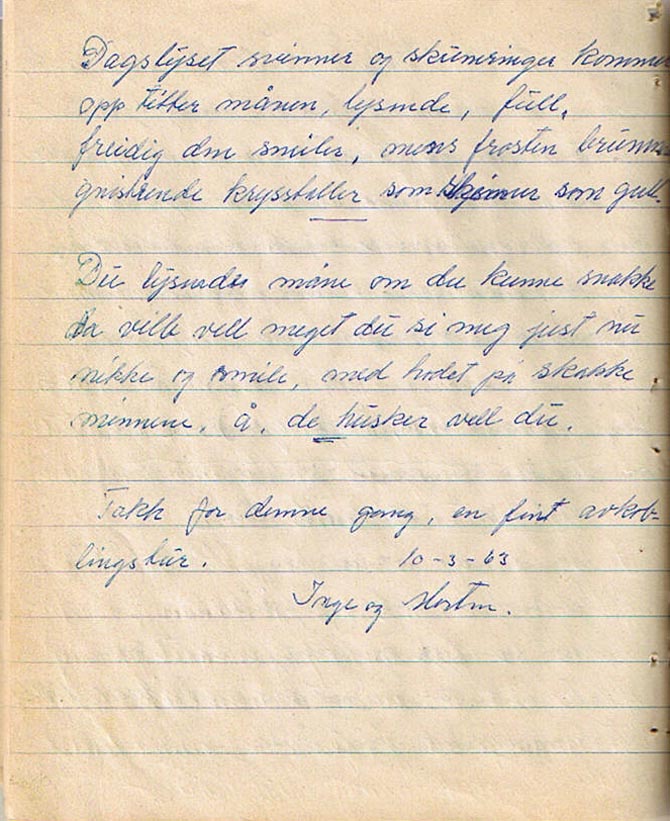 Dagslyset svinner og skumringer kommer
opp titter månen, lysende, full,
freidig den smiler, mens frosten
gnistrende krystaller som skinner som gull.
Du lysende måne om du kunne snakke
da ville vell meget du si meg just nu
nikke og smile, med hodet på skakke
minnene, å, de husker vell du.
Takk for denne gang, en fint avkob-
lingstur. 10-3-63
Inge og